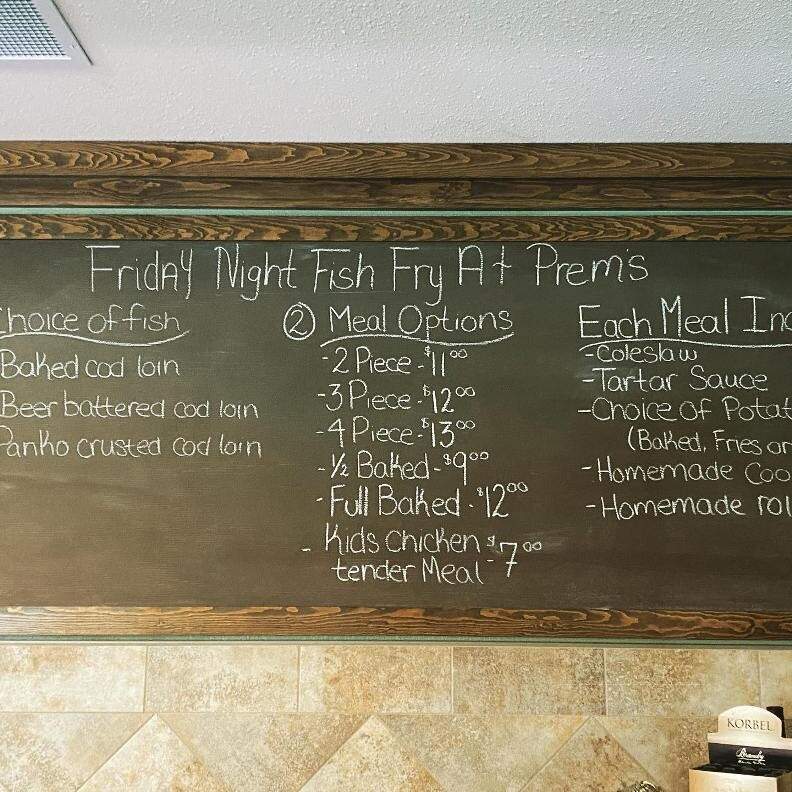 Friday Night Fish Fry At Prem's
Choice of fish
Baked cod loin
Beer battered cod loin
Panko crusted cod loin
② Meal Options
-2 Piece-$11.00
-3 Piece-$12.00
-4 Piece-$13.00
-½ Baked-$9.00
-Full Baked-$12.00
- Kids Chicken
tender Meal-$7.00
Each Meal Inc
-Coleslaw
-Tartar Sauce
-Choice of Potat
(Baked, Fries or
-Homemade Coo
-Homemade rol
KORBEL
Brandy